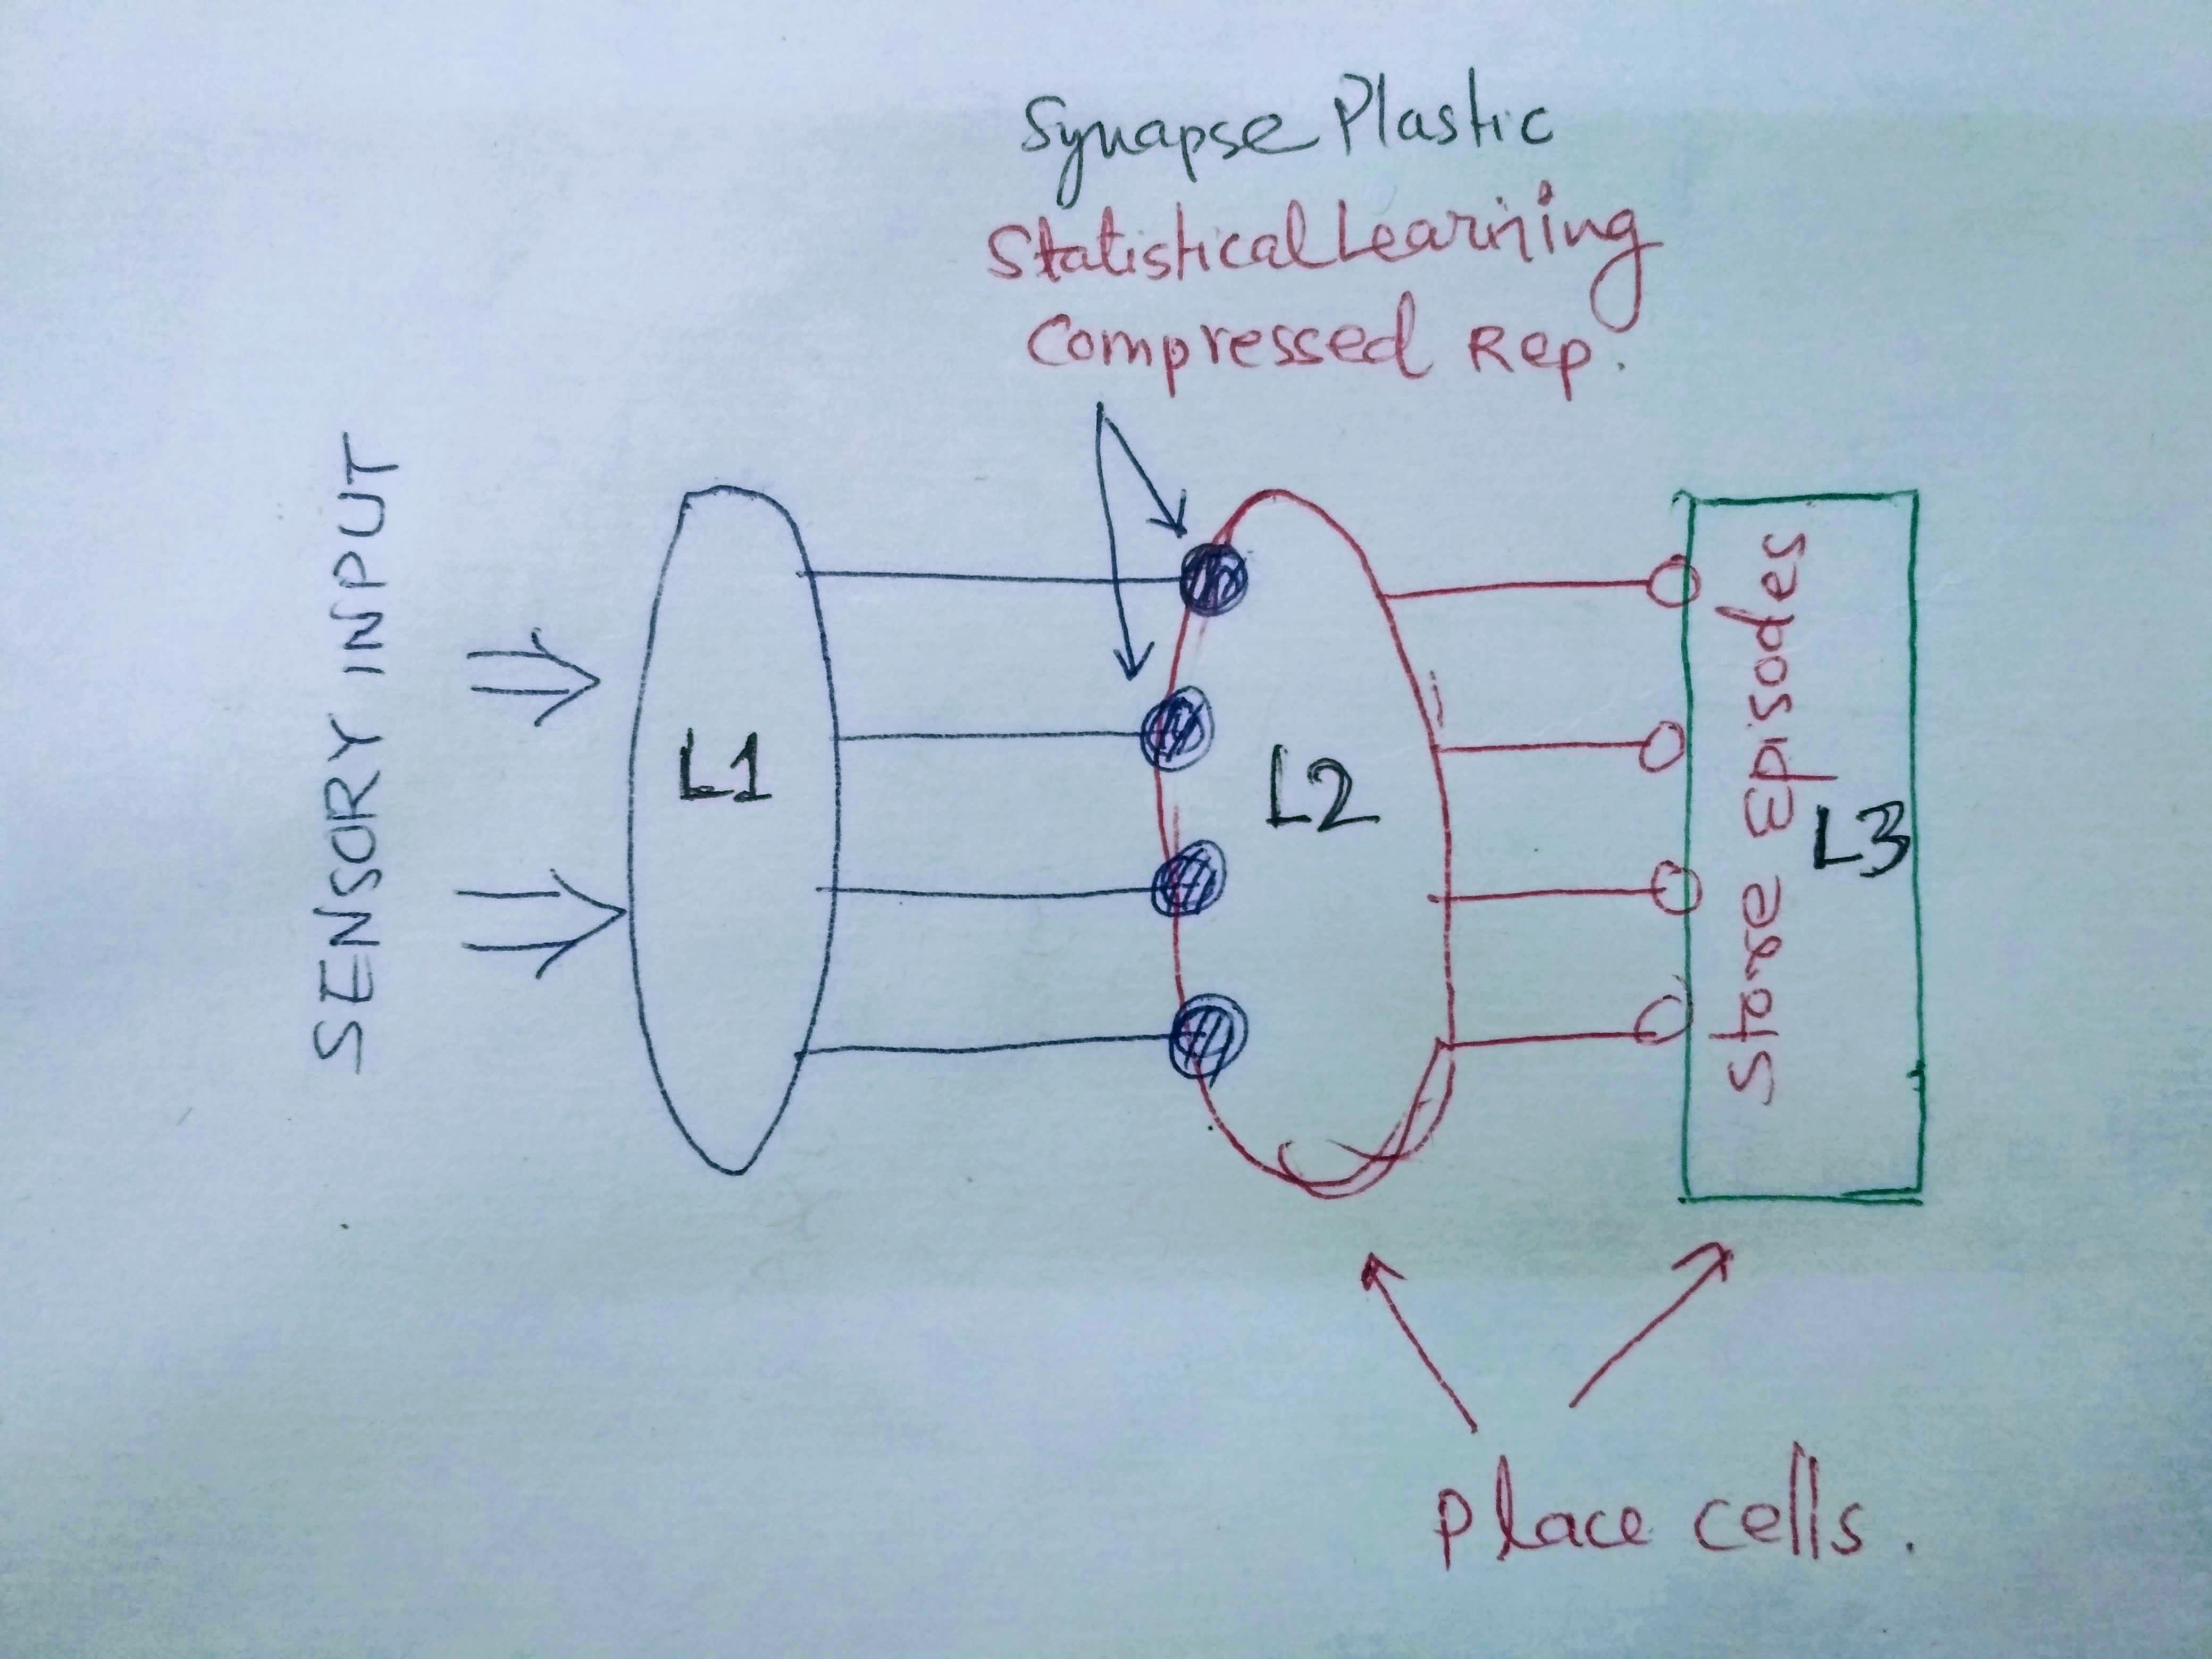 Synapse Plastic
Statistical Learning
Compressed Rep.
SENSORY INPUT
L1
L2
Store Episodes
L3
Place cells.